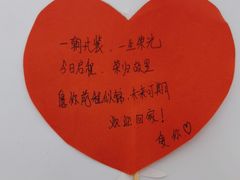 一朝戎装,一生荣光
今日启程,荣归故里
愿你前程似锦,未来可期
欢迎回家!
爱你♡